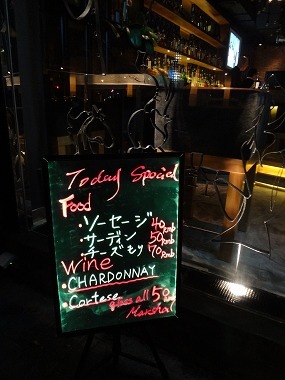 Today Special
Food
・ソーセージ 40rmb
・サーディン 50rmb
・チーズもり 70rmb
Wine
・CHARDONNAY
・Cortese glass all 50